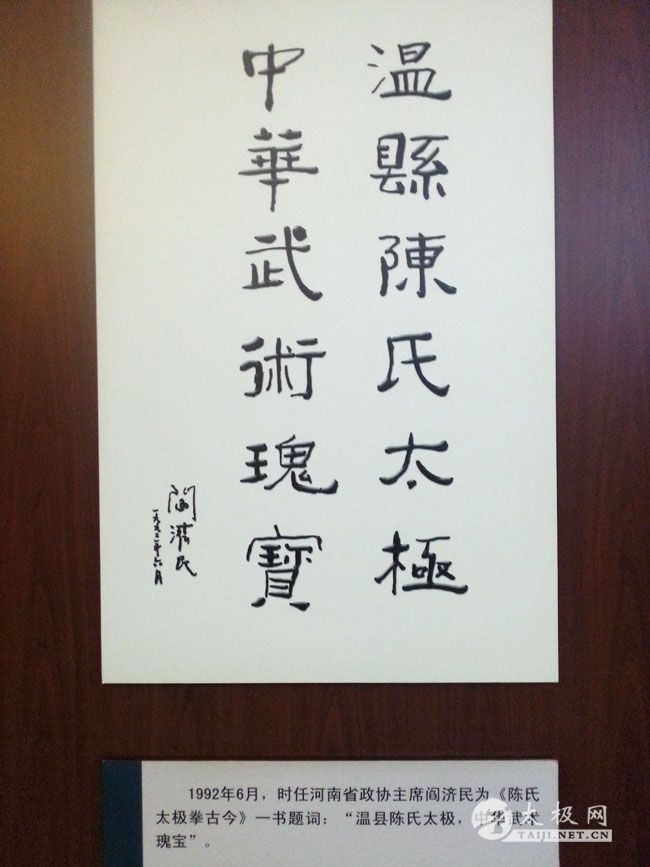 温縣陳氏太極
中華武術瑰寶
閻濟民
一九九二年六月
1992年6月，时任河南省政协主席阎济民为《陈氏
太极拳古今》一书题词：“温县陈氏太极，中华武术
瑰宝”。
太极网
TAIJI.NET.CN